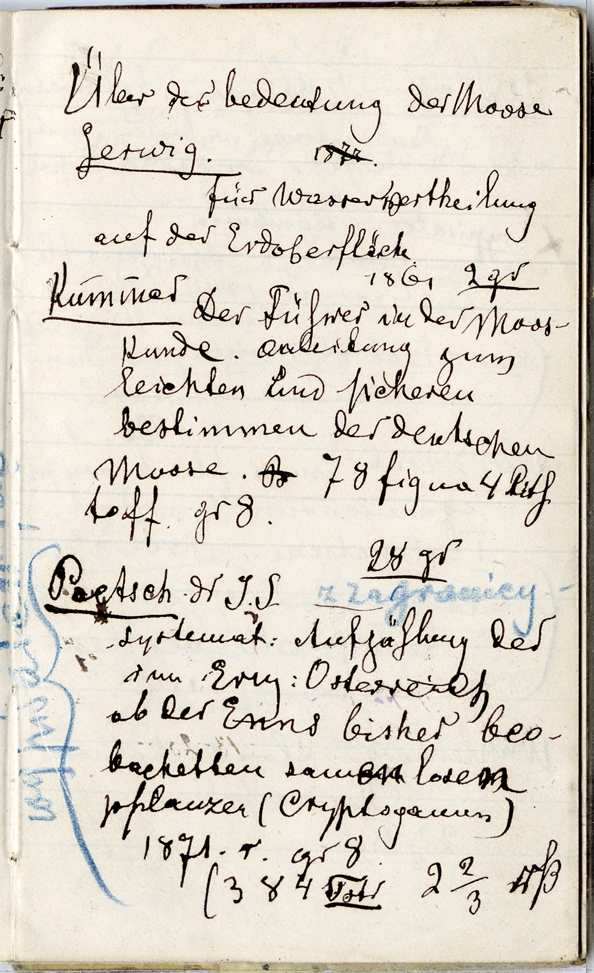 Über die bedeutung der Moose
Gerwig. 1877.
für Wasservertheilung
auf der Erdoberfläche
1861 2 gr
Kummer Der Führer in der Moos-
kunde. Anleitung zum
leichten und sicheren
bestimmen der deutschen
Moose. 78 fig na 4 lith
taff. gr 8.
28 gr
Poetsch dr J.S z zagranicy
systemat: Aufzählung der
im Erzh: Österreich
ob der Enns bisher beo-
bachetten samenlosen
pflanzen (Cryptogamen)
1871. r. gr 8
(384 2 2/3